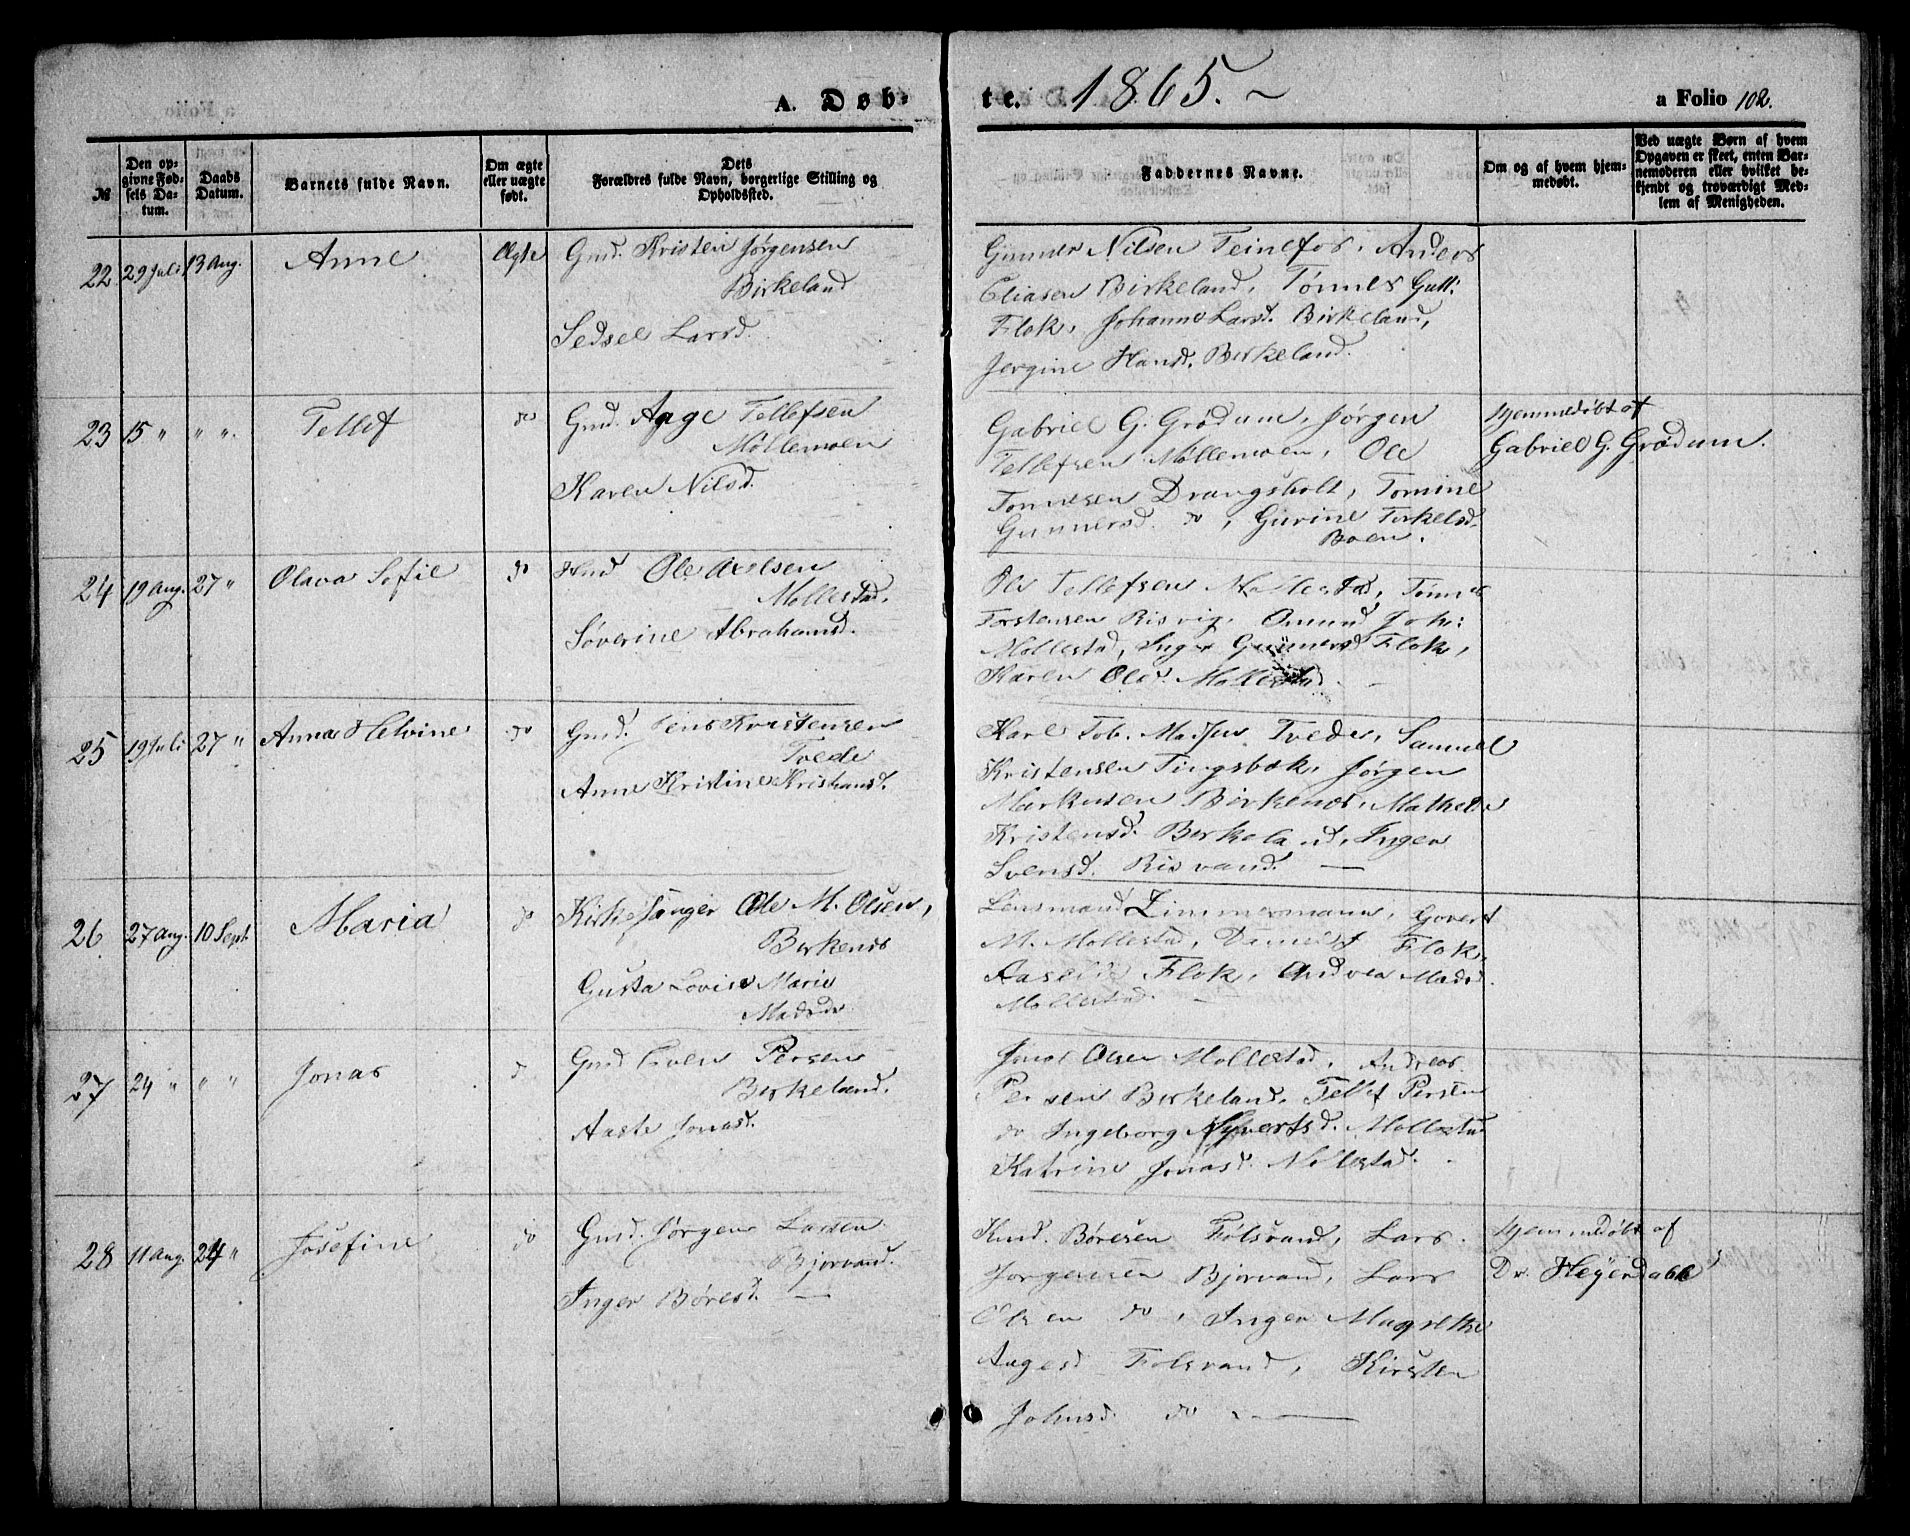 A. Døb-
te. 1865. ~
a Folio 102.
№
Den op-
givne Fød-
sels Da-
tum.
Daabs
Datum.
Barnets fulde Navn.
Om ægte
eller uægte
født.
Dets
Forældres fulde Navn, borgerlige Stilling og
Opholdssted.
Faddernes Navne.
Om og af hvem hjem-
medøbt.
Ved uægte Børn af hvem
Opgaven er skeet, enten Bar-
nemoderen eller hvilket be-
kjendt og troværdigt Med-
lem af Menigheden.
22 29 Juli 13 Aug. Anne Ægte Gmd. Kristen Jørgensen
Birkeland
Sedsel Larsd.
Gunner Nilsen Teinefos, Anders
Eliasen Birkeland, Tønnes Gutt:
Flak, Johanne Larsd. Birkeland,
Jorgine Hansd. Birkeland.
23 15 " " " Tellef do Gmd. Aage Tellefsen
Møllemoen
Karen Nilsd.
Gabriel G. Grødum, Jørgen
Tellefsen Møllemoen, Ole
Tønnesen Drangsholt, Tomine
Gunnersd. do, Gurine Torkelsd.
Boen.
Hjemmedøbt af
Gabriel G. Grødum.
24 19 Aug. 27 " Olava Sofie do Ole Axelsen
Mollestad.
Søverine Abrahamsd.
Ole Tellefsen Mollestad, Tønnes
Torstensen Risvig, Omund Joh:
Mollestad, Inger Gunnersd Flak,
Karen Olsd. Mollestad.
25 19 Juli 27 " Anna Helvine do Gmd. Jens Kristensen
Tvede
Anne Kristine Kristiansd.
Karl Tob. Tvede, Samuel
Kristensen Tingsbæk, Jørgen
Markusen Birkenes, Mathea
Kristensd. Birkeland, Inger
Svensd. Risvand. —
26 27 Aug. 10 Sept. Maria do Kirkesanger Ole M. Olsen,
Birkenes
Gusta Lovise Marie
Madsd.
Lensmand Zimmermann, Govert
M. Mollestad, Daniel J Flak,
Flak, Andrea Madsd.
Mollestad. —
27 24 " " " Jonas do Gmd Sven Persen
Birkeland.
Aaste Jonasd.
Jonas Olsen Mollestad, Andreas
Persen Birkeland, Tellef Persen
do Ingeborg Syvertsd. Mollestad
Katrine Jonasd. Mollestad.
28 11 Aug. 24 " Josefine do Gmd. Jørgen Larsen
Bjorvand.
Inger Børesd. —
Knud Børesen Følsvand, Lars
Jørgensen Bjorvand, Lars
Olsen do, Inger Magrethe
Aagesd Følsvand, Kirsten
Johnsd. do —
Hjemmedøbt af
Dr. Heyerdahl